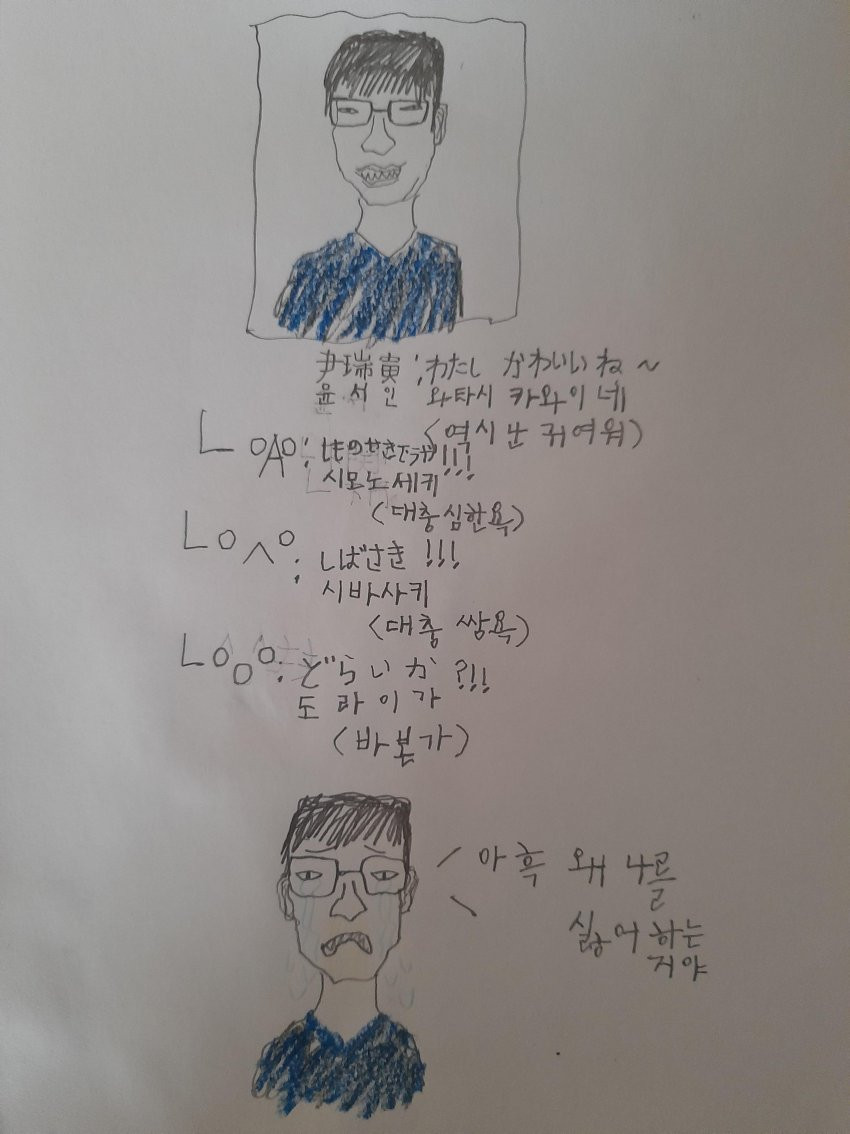 尹瑞寅 : わたし かわいいね~
윤서인 와타시 카와이네
(역시 난 귀여워)
ㄴㅇㅅㅇ : しものせき!!!
시모노세키
(대충 심한욕)
ㄴㅇㅅㅇ : しばさき!!!
시바사키
(대충 쌍욕)
ㄴㅇㅇㅇ : どらいか?!!!
도라이가
(바본가)
아흑 왜 나를
싫어하는
지야